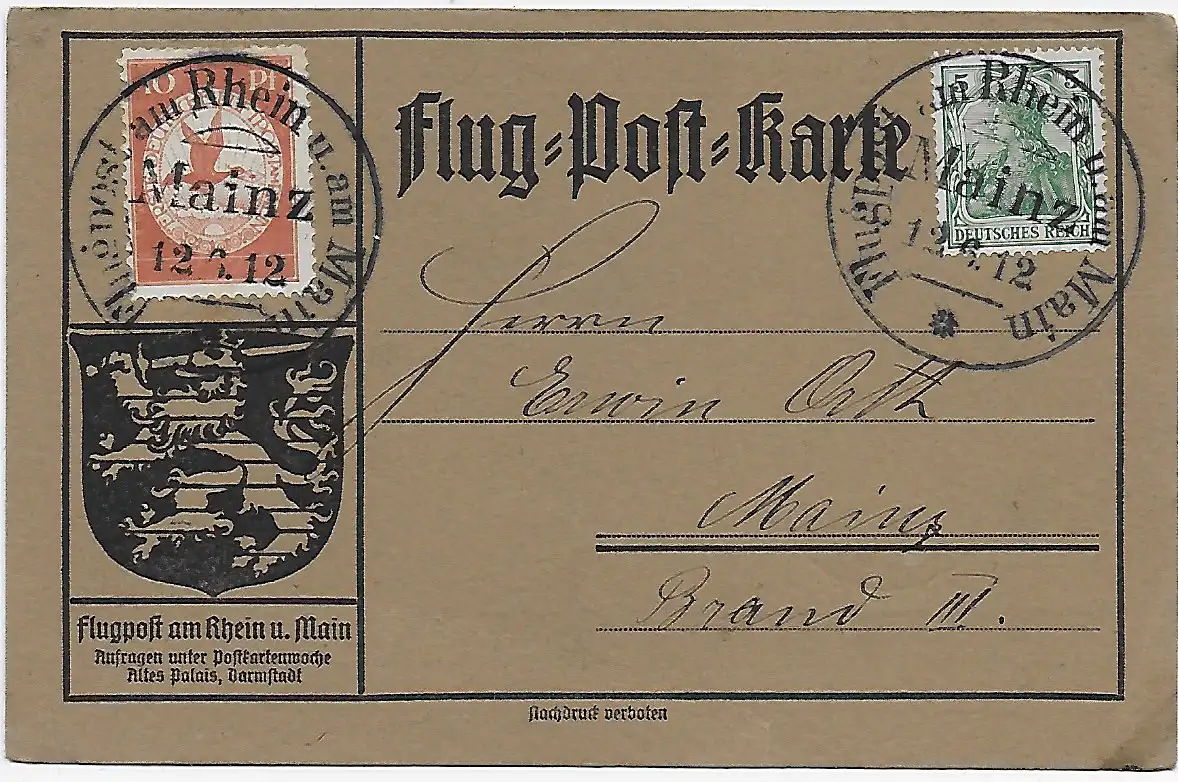 10 Pf
Flugpost am Rhein u. am Main
Mainz
12.6.12
Flug-Post-Karte
5
DEUTSCHES REICH
Flugpost am Rhein u. am Main
Mainz
12.6.12
Herrn
Erwin Orth
Mainz
Brand III.
Flugpost am Rhein u. Main
Anfragen unter Postkartenwoche
Altes Palais, Darmstadt
Nachdruck verboten